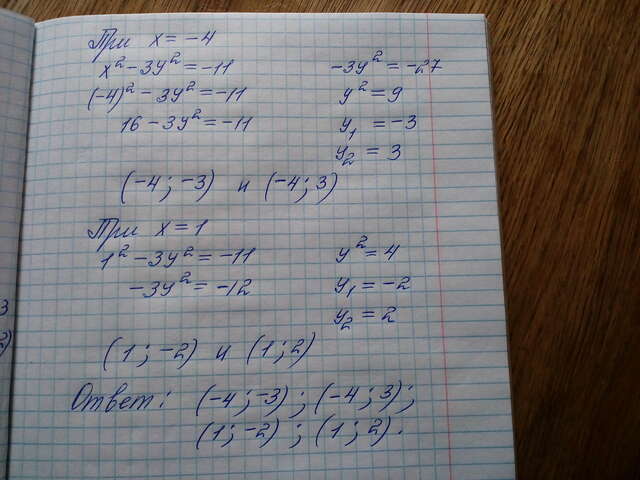 При x = -4
x² - 3y² = -11
(-4)² - 3y² = -11
16 - 3y² = -11
-3y² = -27
y² = 9
y₁ = -3
y₂ = 3
(-4; -3) и (-4; 3)
При x = 1
1² - 3y² = -11
-3y² = -12
y² = 4
y₁ = -2
y₂ = 2
(1; -2) и (1; 2)
Ответ: (-4; -3); (-4; 3);
(1; -2); (1; 2).
3
2)